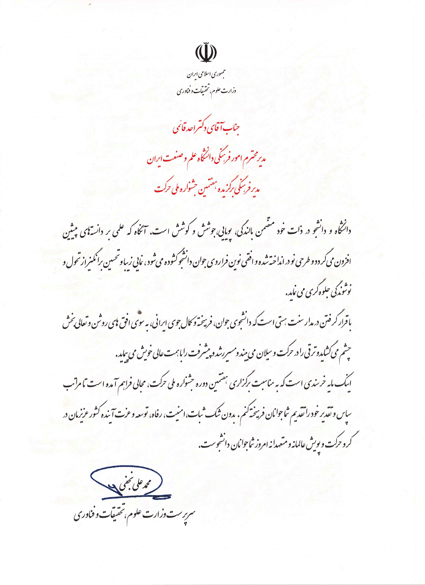 جمهوری اسلامی ایران
وزارت علوم، تحقیقات و فناوری
جناب آقای دکتر احد قائمی
مدیر محترم امور فرهنگی دانشگاه علم و صنعت ایران
مدیر فرهنگی برگزیده هفتمین جشنواره ملی حرکت
دانشگاه و دانشجو در ذات خود متضمن بالندگی، پویایی، جوشش و کوشش است. آنگاه که علمی بر دانسته‌های پیشین
افزون می‌گردد و طرحی نو در انداخته شده و افقی نوین فراروی جوان دانشجو گشوده می‌شود، نمایی زیبا و تحسین برانگیز از تحول و
نوشوندگی جلوه‌گری می‌نماید.
با قرار گرفتن در مدار سنت هستی است که دانشجوی جوان، فرهیخته و کمال جوی ایرانی، به سوی افق های روشن و تعالی بخش
چشم می‌گشاید و ترقی را در حرکت و سیلان می‌بیند و مسیر رشد و پیشرفت را با همت عالی خویش می‌پیماید.
اینک مایه خرسندی است که به مناسبت برگزاری هفتمین دوره جشنواره ملی حرکت، مجالی فراهم آمده است تا مراتب
سپاس و تقدیر خود را تقدیم شما جوانان فرهیخته کنم. بدون شک ثبات، امنیت، رفاه، توسعه و عزت آینده کشور عزیزمان در
گرو حرکت و پویش عالمانه و متعهدانه امروز شما جوانان دانشجوست.
محمدعلی نجفی
سرپرست وزارت علوم، تحقیقات و فناوری